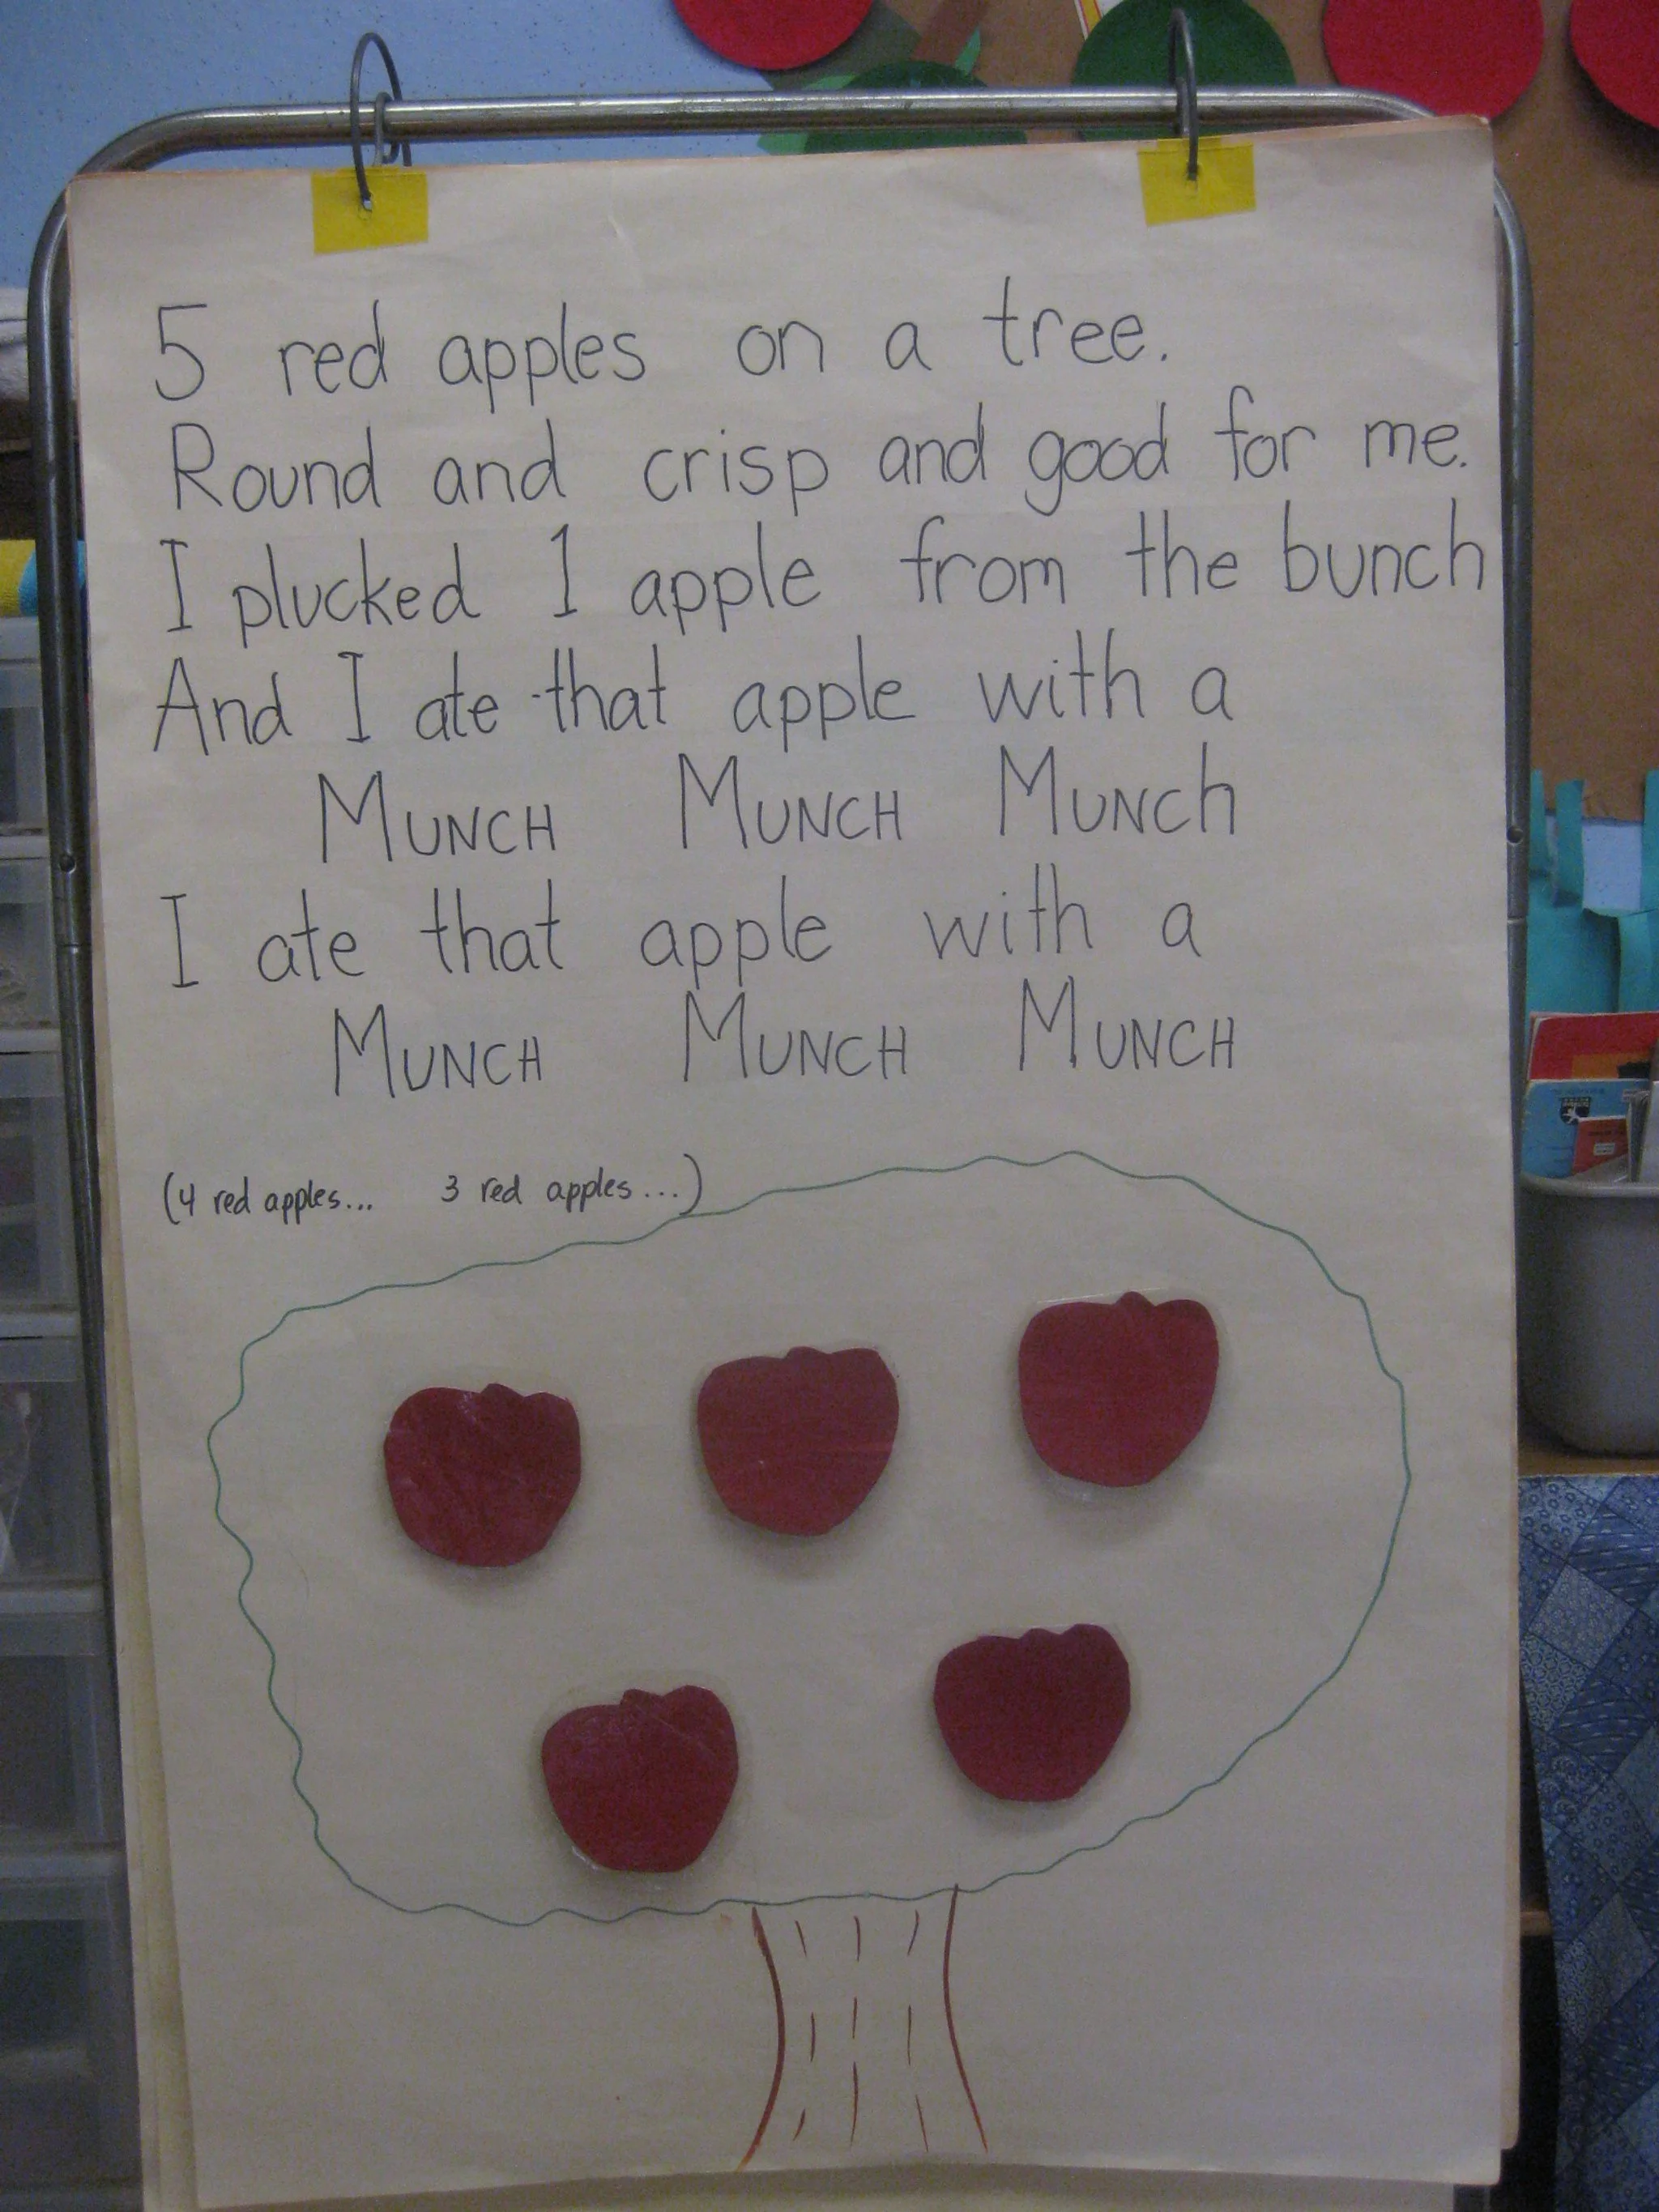 5 red apples on a tree.
Round and crisp and good for me.
I plucked 1 apple from the bunch
And I ate that apple with a
MUNCH MUNCH MUNCh
I ate that apple with a
MUNCH MUNCH MUNCH
(4 red apples... 3 red apples...)